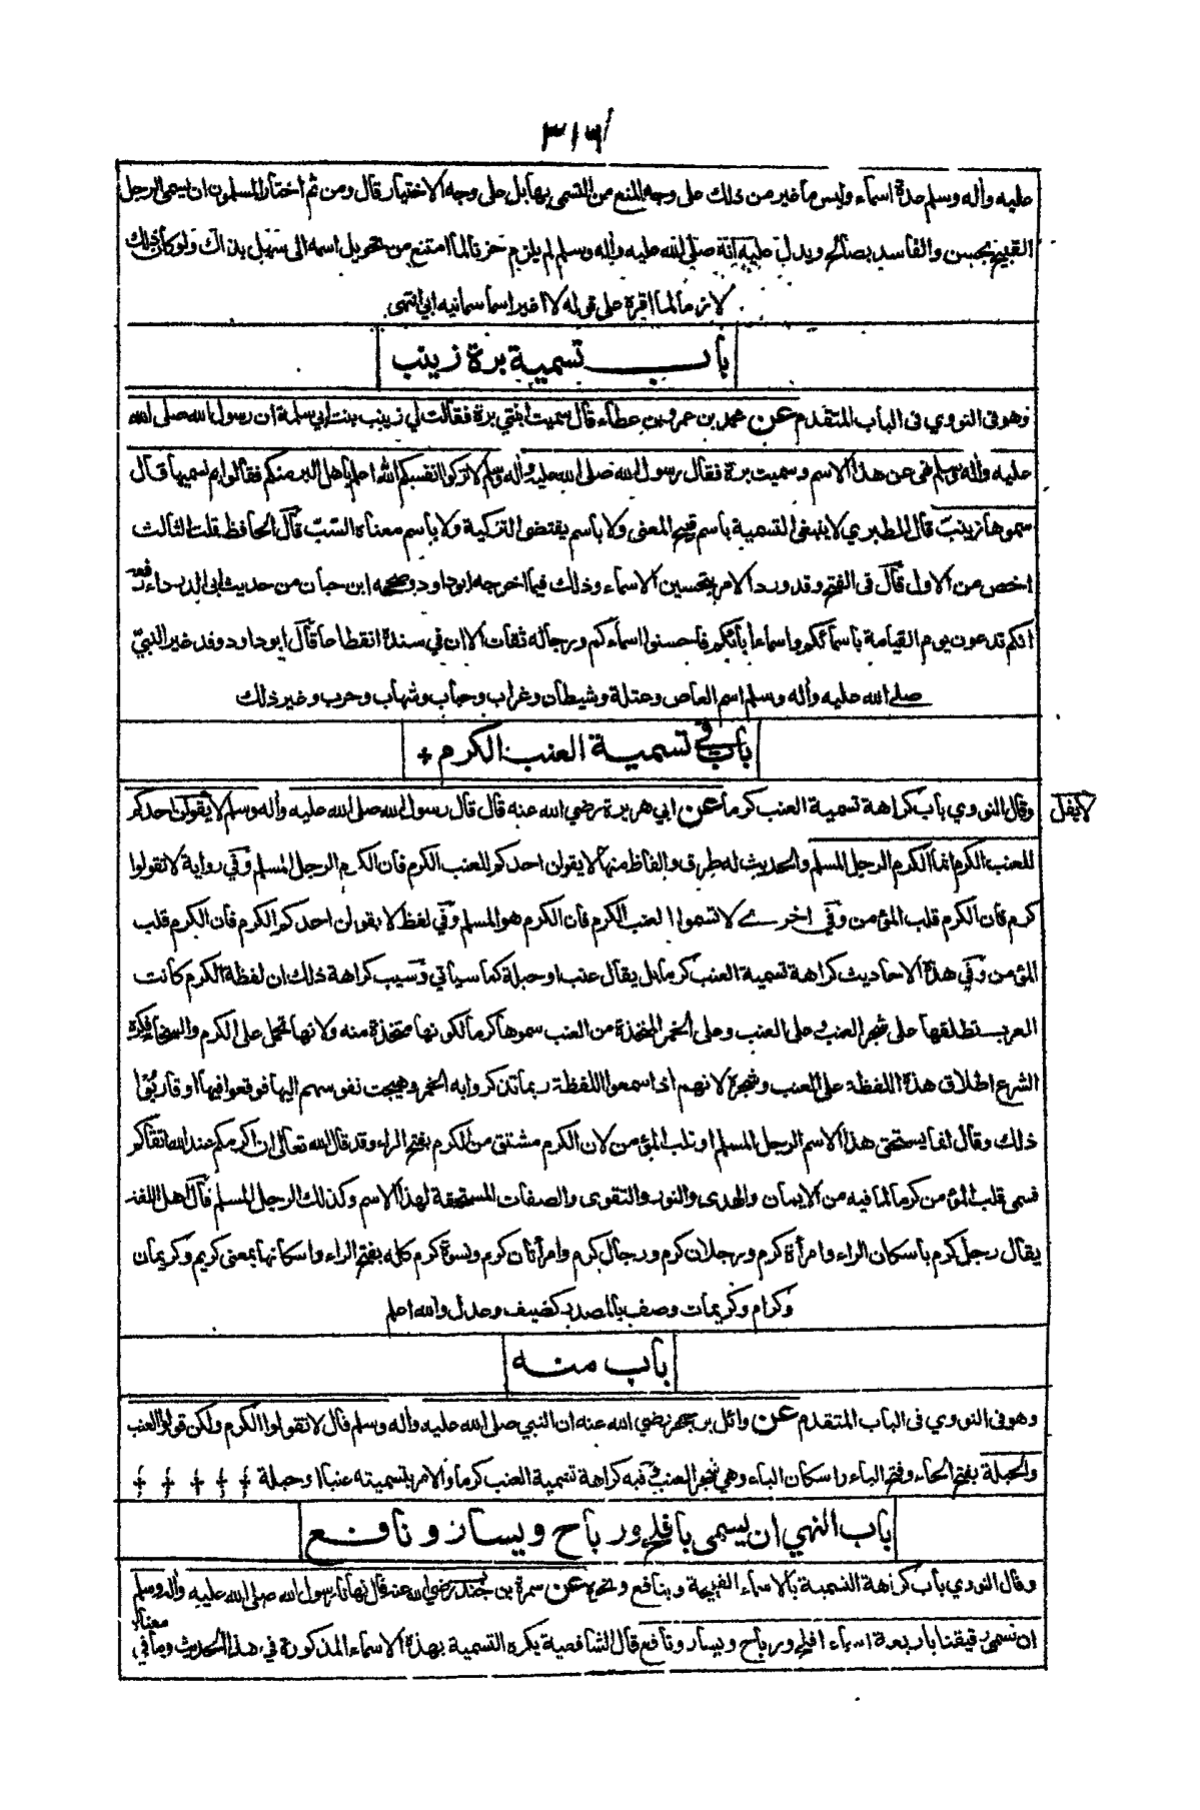 ٣١٦
عليه وأله وسلم عدة اسماء وليس ما غير من ذلك على وجه المنع من التسمى بها بل على وجه الاختيار قال ومن ثم اختار المسلمون ان يسمى الرجل
القبيح بحسن والفاسد بصالح ويدل عليه انه صلى الله عليه وأله وسلم لم يلزم حزنا لما امتنع من تحويل اسمه الى سهل بذاك ولو كان ذلك
لازما لما اقره على قوله لا اغير اسما سمانيه ابي انتهى
باب تسمية برة زينب
وهو فى النووي فى الباب المتقدم عن محمد بن عمرو بن عطاء قال سميت ابنتي برة فقالت لي زينب بنت ابي سلمة ان رسول الله صلى الله
عليه وأله وسلم نهى عن هذا الاسم وسميت برة فقال رسول الله صلى الله عليه وأله وسلم لا تزكوا انفسكم الله اعلم باهل البر منكم فقالوا بم نسميها قال
سموها زينب قال الطبري لا ينبغى التسمية باسم قبيح المعنى ولا باسم يقتضى التزكية ولا باسم معناه السب قال الحافظ قلت الثالث
اخص من الاول قال فى الفتح وقد ورد الامر بتحسين الاسماء وذلك فيما اخرجه ابو داود وصححه ابن حبان من حديث ابى الدرداء رفعه
انكم تدعون يوم القيامة باسمائكم واسماء أبائكم فاحسنوا اسماءكم ورجاله ثقات الا ان في سنده انقطاعا قال ابو داود وقد غير النبيّ
صلى الله عليه وأله وسلم اسم العاص وعتلة وشيطان وغراب وحباب وشهاب وحرب وغير ذلك
باب في تسمية العنب الكرم +
وقال النووي باب كراهة تسمية العنب كرما عن ابي هريرة رضي الله عنه قال قال رسول الله صلى الله عليه وأله وسلم لا يقولن احدكم
لا يقل
للعنب الكرم انما الكرم الرجل المسلم والحديث له طرق والفاظ منها لا يقولن احدكم للعنب الكرم فان الكرم الرجل المسلم وفي رواية لا تقولوا
كرم فان الكرم قلب المؤمن وفي اخرے لا تسموا العنب الكرم فان الكرم هو المسلم وفي لفظ لا يقولن احدكم الكرم فان الكرم قلب
المؤمن وفي هذه الاحاديث كراهة تسمية العنب كرما بل يقال عنب او حبلة كما سيأتي وسبب كراهة ذلك ان لفظة الكرم كانت
العرب تطلقها على شجر العنب وعلى العنب وعلى الخمر المتخذة من العنب سموها كرما لكونها متخذة منه ولانها تحمل على الكرم والسخاء فكره
الشرع اطلاق هذه اللفظة على العنب وشجره لانهم اذا سمعوا اللفظة ربما تذكروا به الخمر وهيجت نفوسهم اليها فوقعوا فيها او قاربوا
ذلك وقال انما يستحق هذا الاسم الرجل المسلم او قلب المؤمن لان الكرم مشتق من الكرم بفتح الراء وقد قال الله تعالى ان اكرمكم عند الله اتقاكم
فسمى قلب المؤمن كرما لما فيه من الايمان والهدى والنور والتقوى والصفات المستحقة لهذا الاسم وكذلك الرجل المسلم قال اهل اللغة
يقال رجل كرم باسكان الراء وامرأة كرم ورجلان كرم ورجال كرم وامرأتان كرم ونسوة كرم كله بفتح الراء واسكانها بمعنى كريم وكريمان
وكرام وكريمات وصف بالمصدر كضيف وعدل والله اعلم
باب منه
وهو فى النووي فى الباب المتقدم عن وائل بن حجر رضي الله عنه ان النبي صلى الله عليه وأله وسلم قال لا تقولوا الكرم ولكن قولوا العنب
والحبلة بفتح الحاء وفتح الباء واسكان الباء وهي شجر العنب فيه كراهة تسمية العنب كرما والامر بتسميته عنبا او حبلة + + + + +
باب النهي ان يسمى بافلح ورباح ويسار ونافع
وقال النووي باب كراهة التسمية بالاسماء القبيحة وبنافع ونحوه عن سمرة بن جندب رضي الله عنه قال نهانا رسول الله صلى الله عليه وأله وسلم
ان نسمى رقيقنا باربعة اسماء افلح ورباح ويسار ونافع قال الشافعية يكره التسمية بهذه الاسماء المذكورة في هذا الحديث وما في معناه